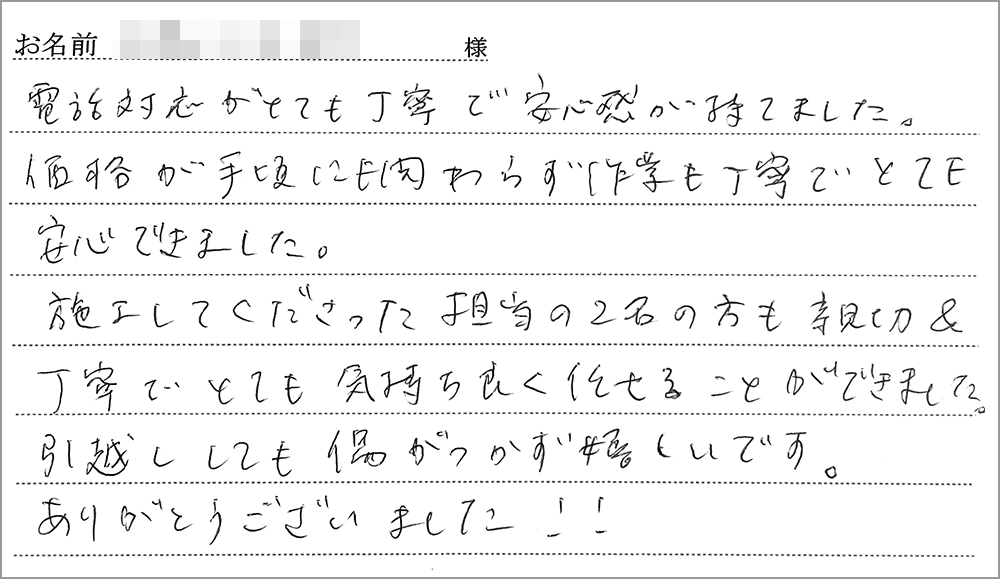 お名前 様
電話対応がとても丁寧で安心感が持てました。
価格が手頃にも関わらず作業も丁寧でとても
安心できました。
施工してくださった担当の2名の方も親切&
丁寧でとても気持ち良く任せることができました。
引越ししても傷がつかず嬉しいです。
ありがとうございました!!